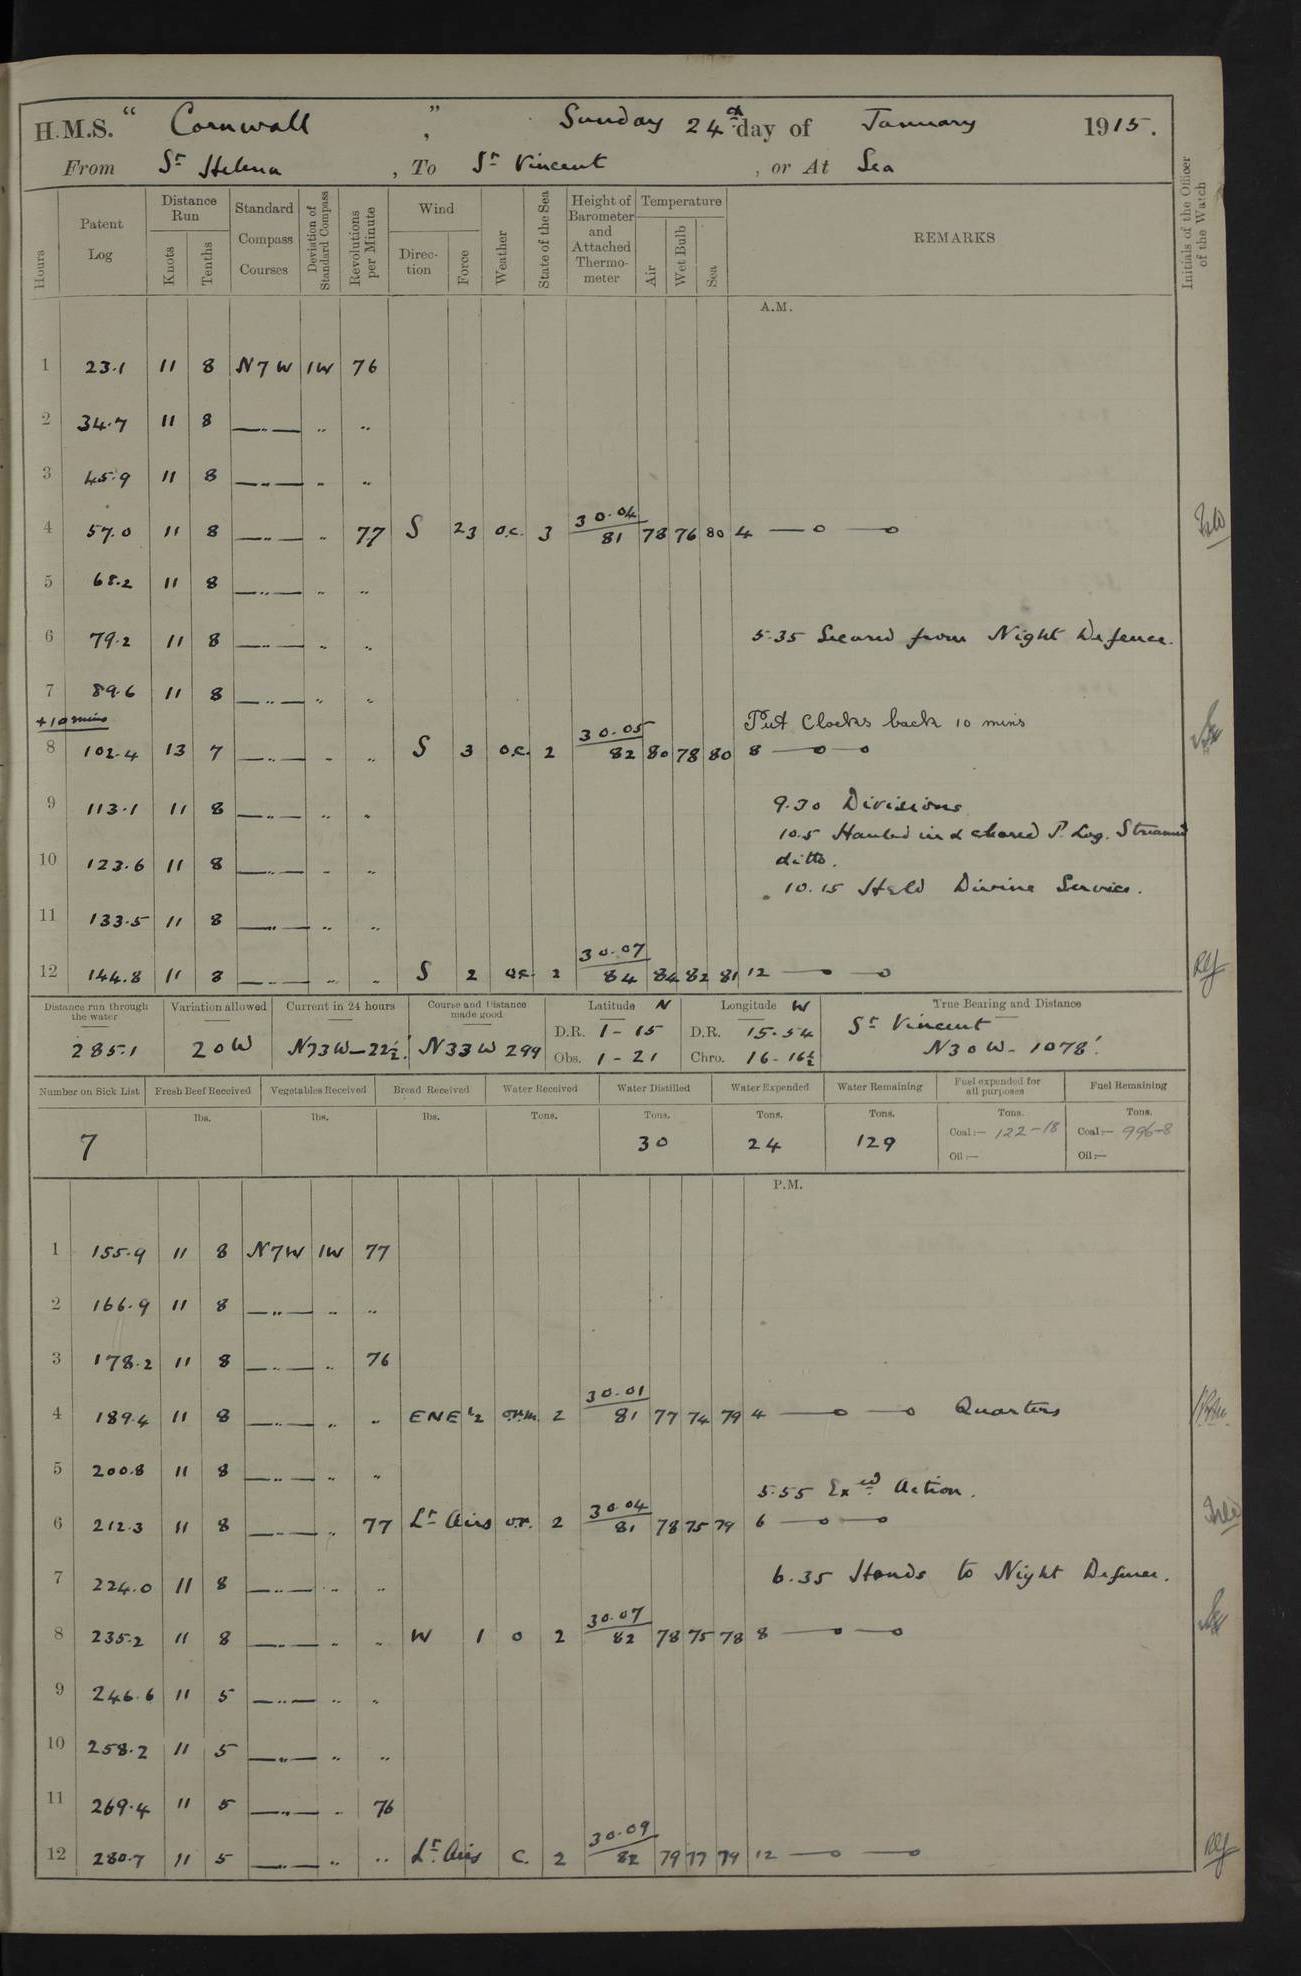 H.M.S. " Cornwall ", Sunday 24th day of January 1915.
From St Helena, To St Vincent, or At Sea
Hours Patent Log Distance Run Knots Tenths Standard Compass Courses Deviation of Standard Compass Revolutions per Minute Wind Direction Force Weather State of the Sea Height of Barometer and Attached Thermometer Temperature Air Wet Bulb Sea REMARKS Initials of the Officer of the Watch
A.M.
1 23.1 11 8 N7W 1W 76
2 34.7 11 8 —„— „ „
3 45.9 11 8 —„— „ „
4 57.0 11 8 —„— „ 77 S 23 o.c. 3 30.04 81 78 76 80 4 —o —o
5 68.2 11 8 —„— „ „
6 79.2 11 8 —„— „ „ 5.35 Secured from Night Defence.
7 89.6 11 8 —„— „ „
+10 mins Put Clocks back 10 mins
8 102.4 13 7 —„— „ „ S 3 o.c. 2 30.05 82 80 78 80 8 —o —o
9 113.1 11 8 —„— „ „ 9.30 Divisions
10.5 Hauled in & cleared P. Log. Streamed
10 123.6 11 8 —„— „ „ ditto.
10.15 Held Divine Service.
11 133.5 11 8 —„— „ „
12 144.8 11 8 —„— „ „ S 2 o.c. 2 30.07 84 84 82 81 12 —o —o
Distance run through the water Variation allowed Current in 24 hours Course and Distance made good Latitude N Longitude W True Bearing and Distance
285.1 20W N73W–22½' N33W 299 D.R. 1-15 D.R. 15.54 St Vincent
Obs. 1-21 Chro. 16-16½ N30W-1078'.
Number on Sick List Fresh Beef Received Vegetables Received Bread Received Water Received Water Distilled Water Expended Water Remaining Fuel expended for all purposes Fuel Remaining
lbs. lbs. lbs. Tons. Tons. Tons. Tons. Tons. Tons.
7 30 24 129 Coal:— 122-18 Coal:— 996-8
Oil:— Oil:—
P.M.
1 155.9 11 8 N7W 1W 77
2 166.9 11 8 —„— „ „
3 178.2 11 8 —„— „ 76
4 189.4 11 8 —„— „ „ ENE 1/2 o.r.m. 2 30.01 81 77 74 79 4 —o —o Quarters
5 200.8 11 8 —„— „ „
5.55 Exed Action.
6 212.3 11 8 —„— „ 77 Lt Airs o.r. 2 30.04 81 78 75 79 6 —o —o
7 224.0 11 8 —„— „ „ 6.35 Hands to Night Defence.
8 235.2 11 8 —„— „ „ W 1 o 2 30.07 82 78 75 78 8 —o —o
9 246.6 11 5 —„— „ „
10 258.2 11 5 —„— „ „
11 269.4 11 5 —„— „ 76
12 280.7 11 5 —„— „ „ Lt. Airs c. 2 30.09 82 79 77 79 12 —o —o